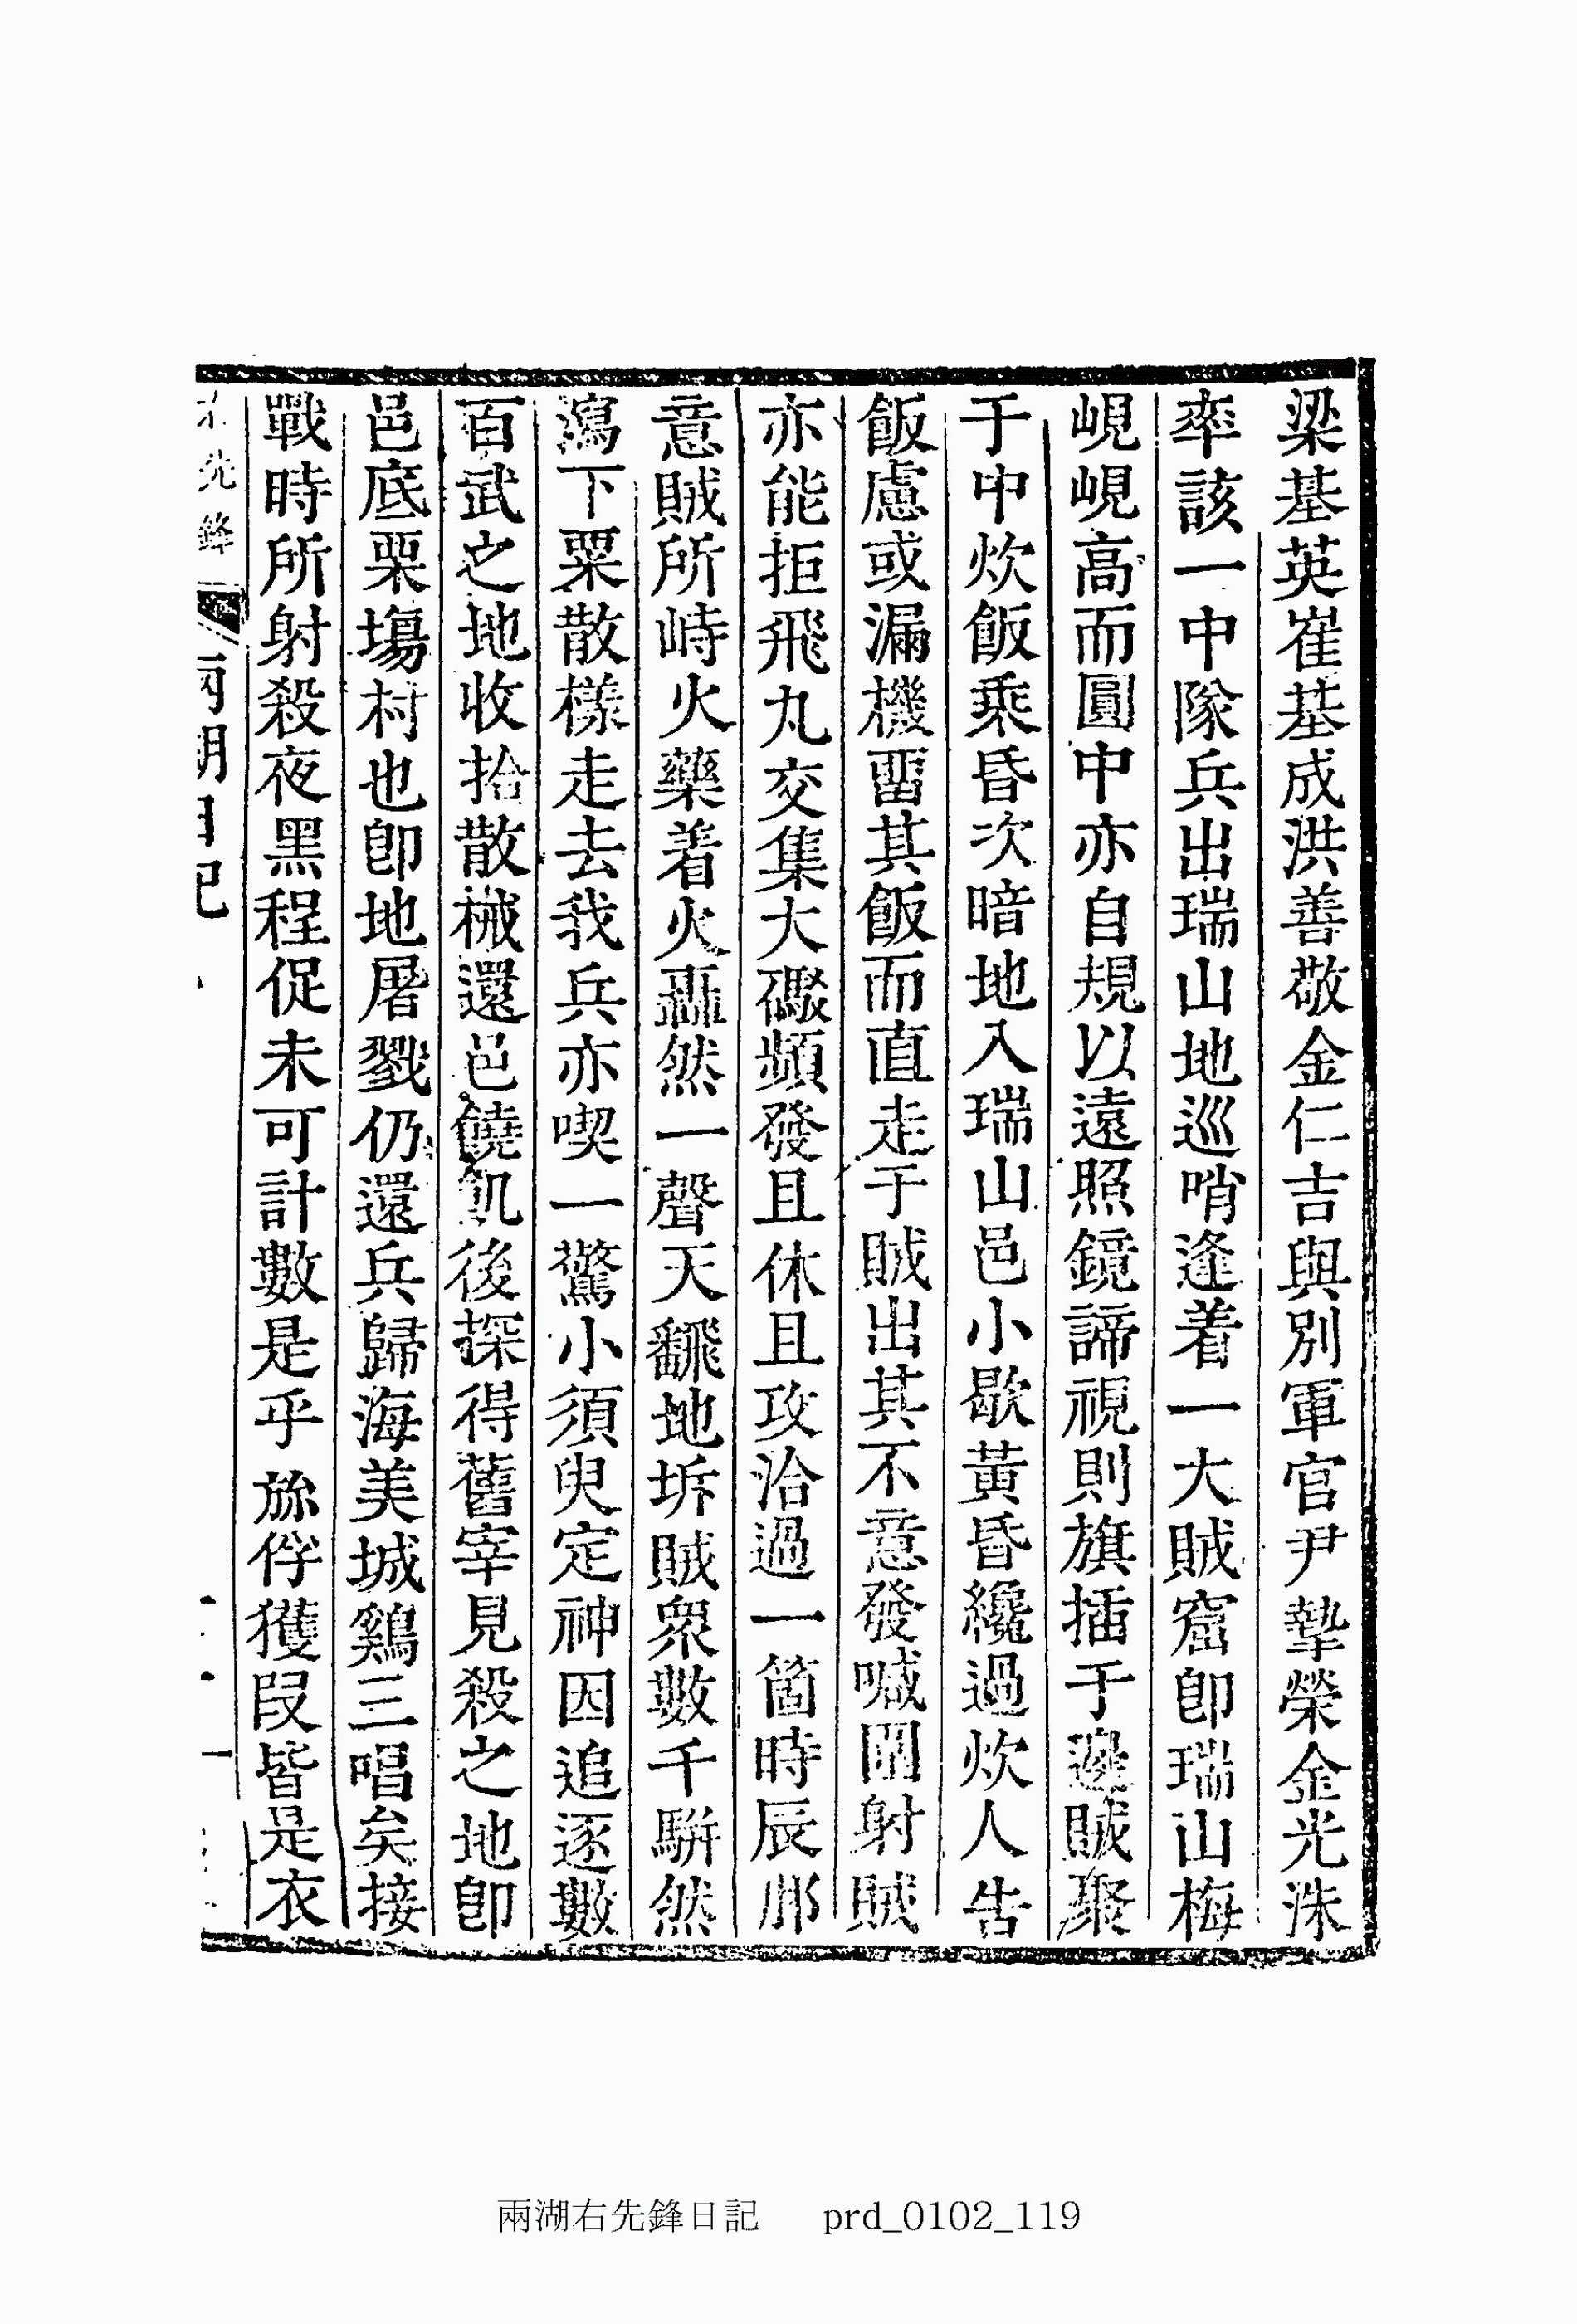 梁基英崔基成洪善敬金仁吉與別軍官尹摯榮金光洙
率該一中隊兵出瑞山地巡哨逢着一大賊窟卽瑞山梅
峴峴高而圓中亦自規以遠照鏡諦視則旗揷于邊賊聚
于中炊飯乘昏次暗地入瑞山邑小歇黃昏纔過炊人告
飯慮或漏機畱其飯而直走于賊出其不意發喊圍射賊
亦能拒飛丸交集大礟頻發且休且攻洽過一箇時辰那
意賊所峙火藥着火轟然一聲天飜地坼賊衆數千騈然
瀉下粟散樣走去我兵亦喫一驚小須臾定神因追逐數
百武之地收拾散械還邑饒飢後探得舊宰見殺之地卽
邑底栗塲村也卽地屠戮仍還兵歸海美城鷄三唱矣接
戰時所射殺夜黑程促未可計數是乎㫆俘獲段皆是衣
先鋒 兩湖日記
兩湖右先鋒日記 prd_0102_119